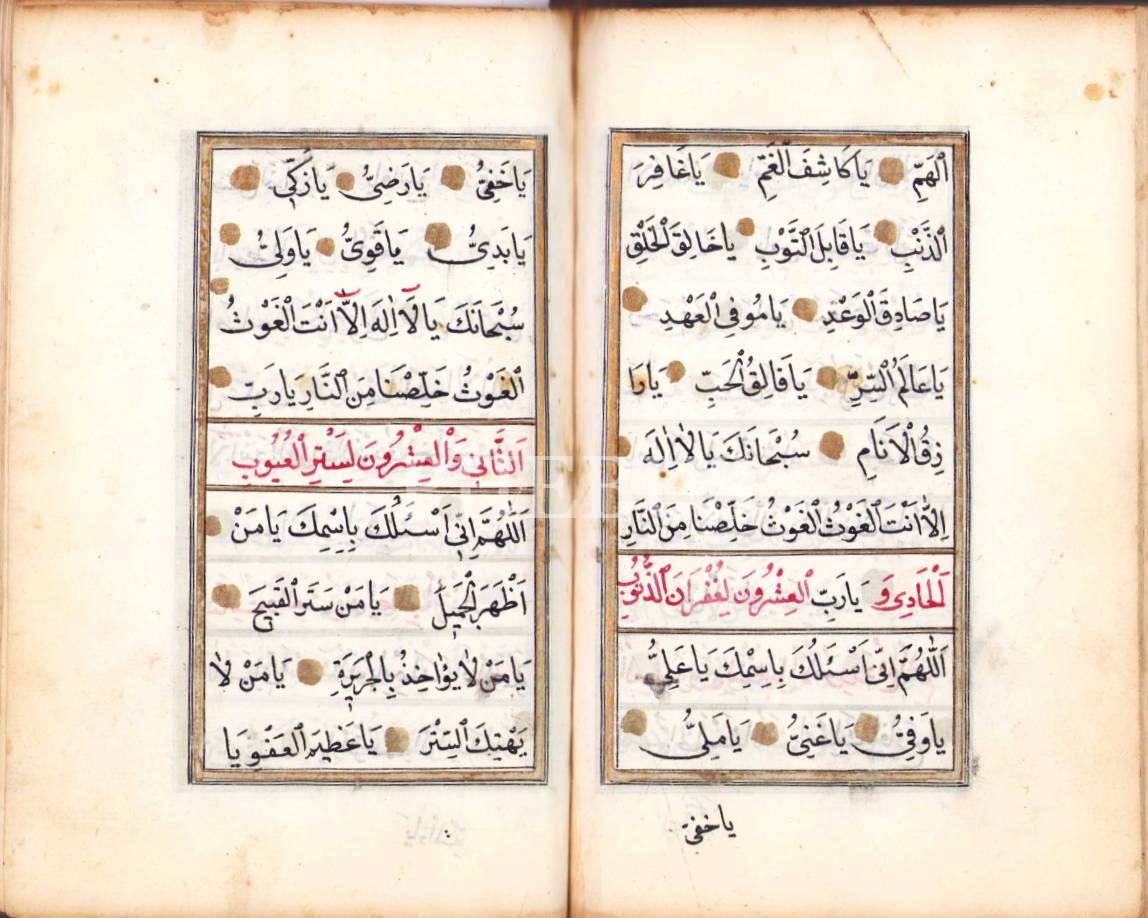 اَلْهَمِّ يَا كَاشِفَ الْغَمِّ يَا غَافِرَ
الذَّنْبِ يَا قَابِلَ التَّوْبِ يَا خَالِقَ الْخَلْقِ
يَا صَادِقَ الْوَعْدِ يَا مُوفِىَ الْعَهْدِ
يَا عَالِمَ السِّرِّ يَا فَالِقَ الْحَبِّ يَا رَا
زِقَ الْاَنَامِ سُبْحَانَكَ يَا لَا اِلٰهَ
اِلَّا اَنْتَ الْغَوْثُ الْغَوْثُ خَلِّصْنَا مِنَ النَّارِ
اَلْحَادِى وَ يَا رَبِّ الْعِشْرُونَ لِغُفْرَانِ الذُّنُوبِ
اَللّٰهُمَّ اِنِّى اَسْئَلُكَ بِاِسْمِكَ يَا عَلِىُّ
يَا وَفِىُّ يَا غَنِىُّ يَا مَلِىُّ
يا خفىّ
يَا خَفِىُّ يَا رَضِىُّ يَا زَكِّى
يَا بَدِىُّ يَا قَوِىُّ يَا وَلِىُّ
سُبْحَانَكَ يَا لَا اِلٰهَ اِلَّا اَنْتَ الْغَوْثُ
الْغَوْثُ خَلِّصْنَا مِنَ النَّارِ يَا رَبِّ
اَلثَّانِى وَالْعِشْرُونَ لِسَتْرِ الْعُيُوبِ
اَللّٰهُمَّ اِنِّى اَسْئَلُكَ بِاِسْمِكَ يَا مَنْ
اَظْهَرَ الْجَمِيلَ يَا مَنْ سَتَرَ الْقَبِيحَ
يَا مَنْ لَا يُؤَاخِذُ بِالْجَرِيرَةِ يَا مَنْ لَا
يَهْتِكُ السِّتْرَ يَا عَظِيمَ الْعَفْوِ يَا